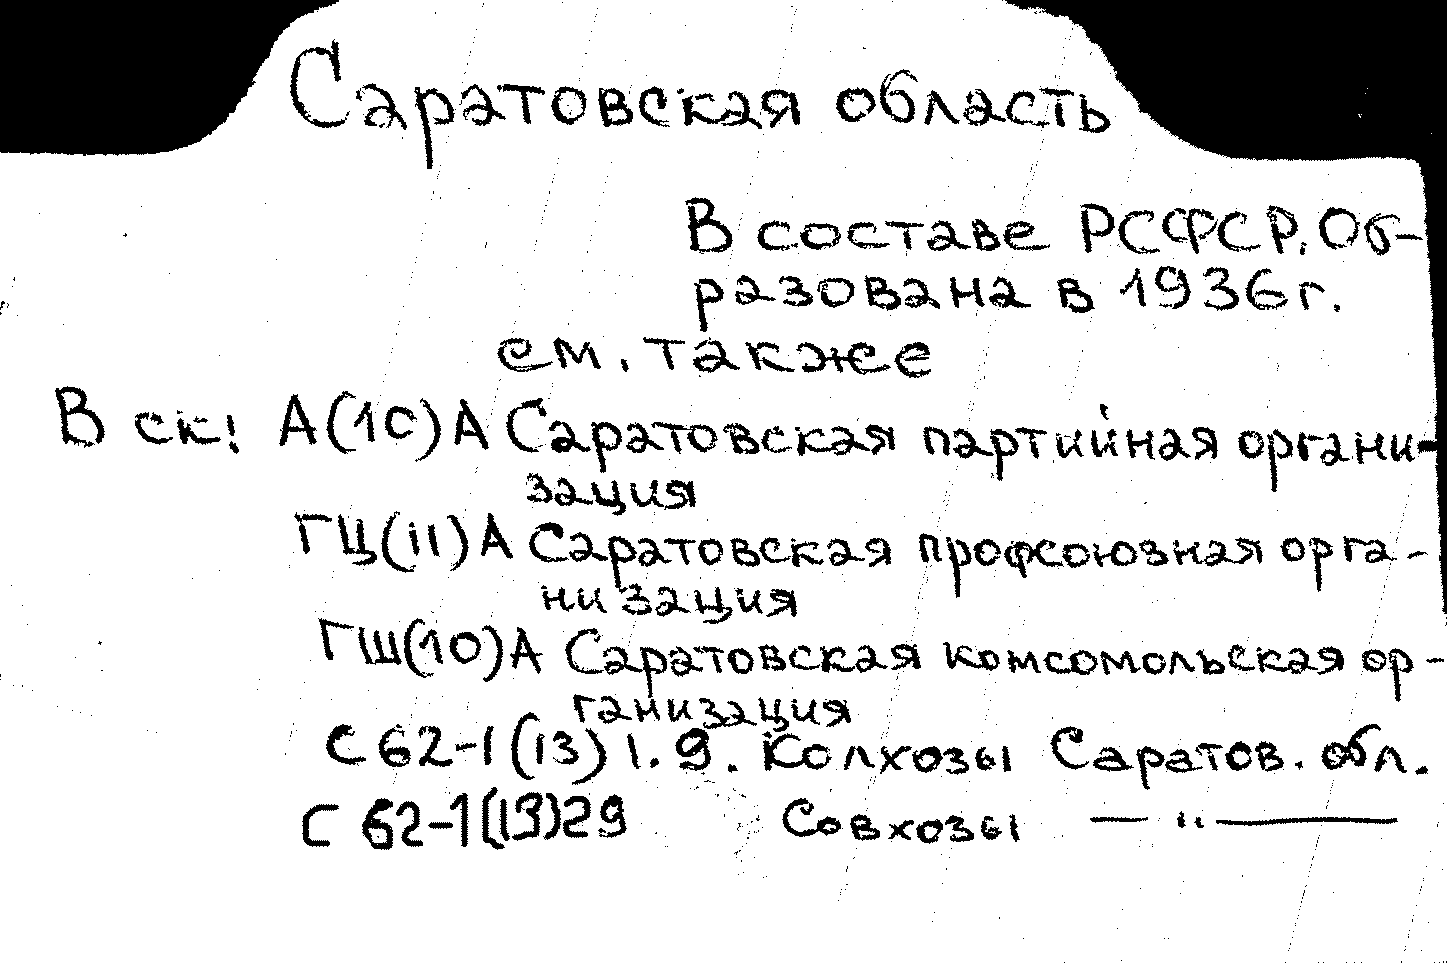 Саратовская область
В составе РСФСР. Об-
разована в 1936 г.
см. также
В ск! А(1С)А Саратовская партийная органи-
зация
ГЦ(11)А Саратовская профсоюзная орга-
низация
ГШ(10)А Саратовская комсомольская ор-
ганизация
С 62-1(13)1.9. Колхозы Саратов. обл.
С 62-1(13)29 Совхозы — " —